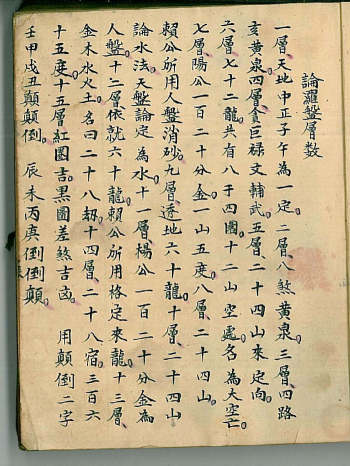 論羅盤層数
一層天地中正子午為一定二層八煞黃泉三層四路
亥黃泉四層貪巨禄文輔武五層二十四山來定向
六層七十二龍共有八于四國十二山空處名為大空亡
七層陽公一百二十分金一山五度八層二十四山
賴公所用人盤消砂九層透地六十龍十層二十四山
論水法天盤論定為水十一層楊公一百二十分金為
人盤十二層依就六十龍賴公所用格定來龍十三層
金木水火土名曰二十八刼十四層二十八宿三百六
十五度十五層紅圈吉黑圈差煞吉凶 用顛倒二字
壬甲戌丑顛顛倒 辰未丙庚倒倒顛